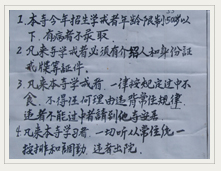 1. 本寺今年招生学戒者年龄限制50岁以
下，有病者不录取
2. 凡来本寺学戒者必须有介绍人和身份证
或牒等证件。
3. 凡来本寺学戒者，一律按规定过中不
食，不得任何理由违背常住规律，
违者不能过中者请到他寺安居
4. 凡来本寺学习者，一切听从常住统一
按排和调动，违者出院。